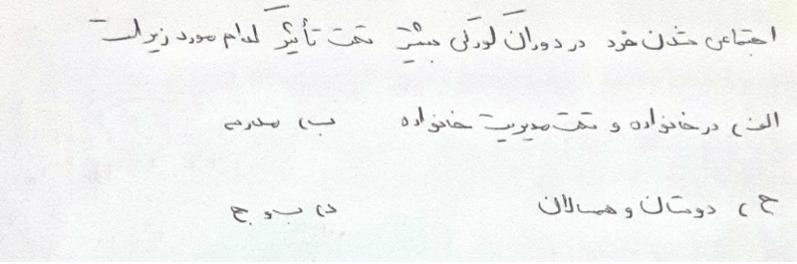 اجتماعی شدن فرد در دوران کودکی بیشتر تحت تأثیر کدام مورد زیر است
الف) در خانواده و تحت مدیریت خانواده ب) مدرسه
ج) دوستان و همسالان د) ب و ج